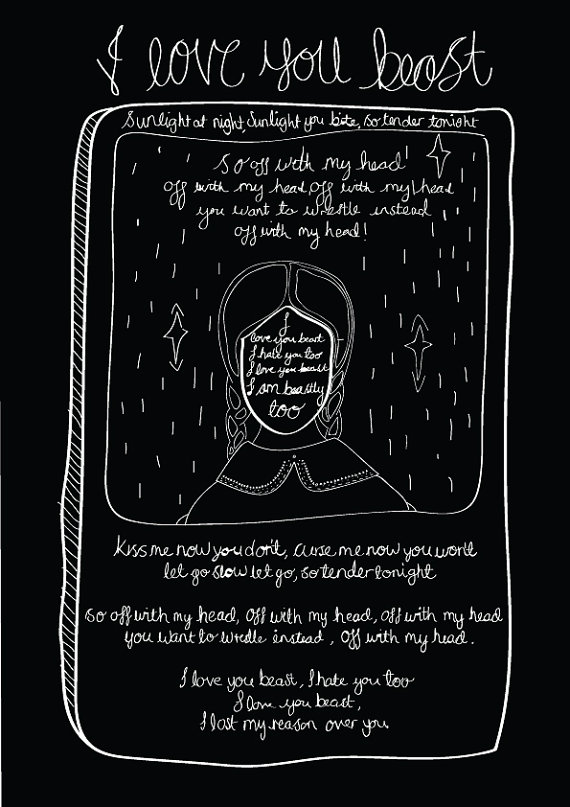 I love you beast
Sunlight at night, Sunlight you bite, so tender tonight
So off with my head
off with my head, off with my head
you want to wrestle instead
off with my head!
I
love you beast
I hate you too
I love you beast
I am beastly
too
Kiss me now you don't, curse me now you won't
let go slow let go, so tender tonight
So off with my head, off with my head, off with my head
you want to wrestle instead, off with my head.
I love you beast, I hate you too
I love you beast,
I lost my reason over you